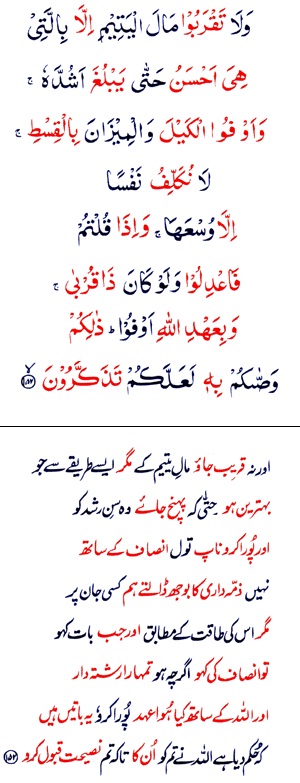 وَلَا تَقْرَبُوْا مَالَ الْيَتِيْمِ اِلَّا بِالَّتِيْ
هِيَ اَحْسَنُ حَتّٰى يَبْلُغَ اَشُدَّهٗ ۚ
وَاَوْفُوا الْكَيْلَ وَالْمِيْزَانَ بِالْقِسْطِ ۚ
لَا نُكَلِّفُ نَفْسًا
اِلَّا وُسْعَهَا ۚ وَاِذَا قُلْتُمْ
فَاعْدِلُوْا وَلَوْ كَانَ ذَا قُرْبٰى ۚ
وَبِعَهْدِ اللّٰهِ اَوْفُوْا ؕ ذٰلِكُمْ
وَصّٰىكُمْ بِهٖ لَعَلَّكُمْ تَذَكَّرُوْنَ ۙ﴿۱۵۲﴾
اور نہ قریب جاؤ مالِ یتیم کے مگر ایسے طریقے سے جو
بہترین ہو حتّٰی کہ پہنچ جائے وہ سِن رشد کو
اور پُورا کرو ناپ تول انصاف کے ساتھ
نہیں ذمّہ داری کا بوجھ ڈالتے ہم کسی جان پر
مگر اس کی طاقت کے مطابق اور جب بات کہو
تو انصاف کی کہو اگرچہ ہو تمہارا رشتہ دار
اور اللہ کے ساتھ کیا ہُوا عہد پُورا کرو یہ باتیں ہیں
کہ حُکم دیا ہے اللہ نے تم کو اُن کا تاکہ تم نصیحت قبول کرو ﴿۱۵۲﴾